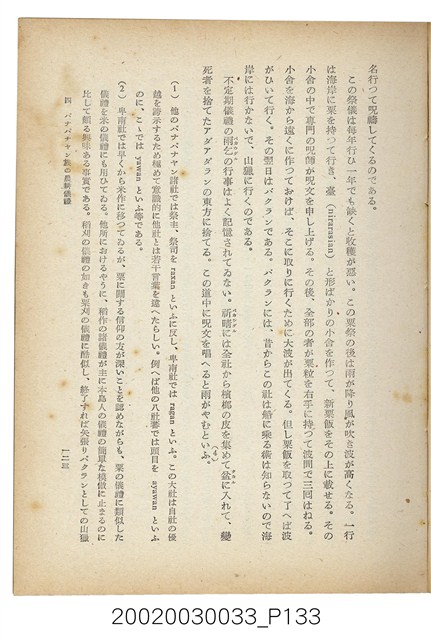 名行つて呪禱してくるのである。
この祭儀は毎年行ひ一年でも缺くと收穫が惡い。この粟祭の後は雨が降り風が吹き波が高くなる。一行
は海岸に粟を持つて行き、臺（nirarasian）と形ばかりの小舍を作つて、新粟飯をその上に載せる。その
小舍の中で専門の呪師が呪文を申し上げる。その後、全部の者が粟粒を右手に持つて波間で三回はねる。
小舍を海から遠くに作つておけば、そこに取りに行くために大波が出てくる。但し粟飯を取つて了へば波
がひいて行く。その翌日はバクランである。バクランには、昔からこの社は船に乘る術は知らないので海
岸には行かないで、山獵に行くのである。
不定期儀禮の雨乞の行事はよく記憶されてゐない。祈晴には全社から檳榔の皮を集めて盆に入れて、變
死者を捨てたアダアダランの東方に捨てる。この道中に呪文を唱へると雨がやむといふ。(4)
（1） 他のパナパナヤン諸社では祭主、祭司を rasan といふに反し、卑南社では ragan といふ。この大社は自社の優
越を誇示するため極めて意識的に他社とは若干言葉を違へたらしい。例へば他の八社蕃では頭目を ayawan といふ
のに、こゝでは yawan といふ等である。
（2） 卑南社では早くから米作に移つてゐるが、粟に關する信仰の方が深いことを認めながらも、粟の儀禮に類似した
儀禮を米の儀禮にも用ひてゐる。他所におけるやうに、稻作の諸儀禮が主に本島人の儀禮の簡單な模倣に止まるのに
比して頗る興味ある事實である。稻刈の儀禮の如きも粟刈の儀禮に酷似し、終了すれば矢張りバクランとしての山獵
四 パナパナヤン族の農耕儀禮
一一三
20020030033_P133